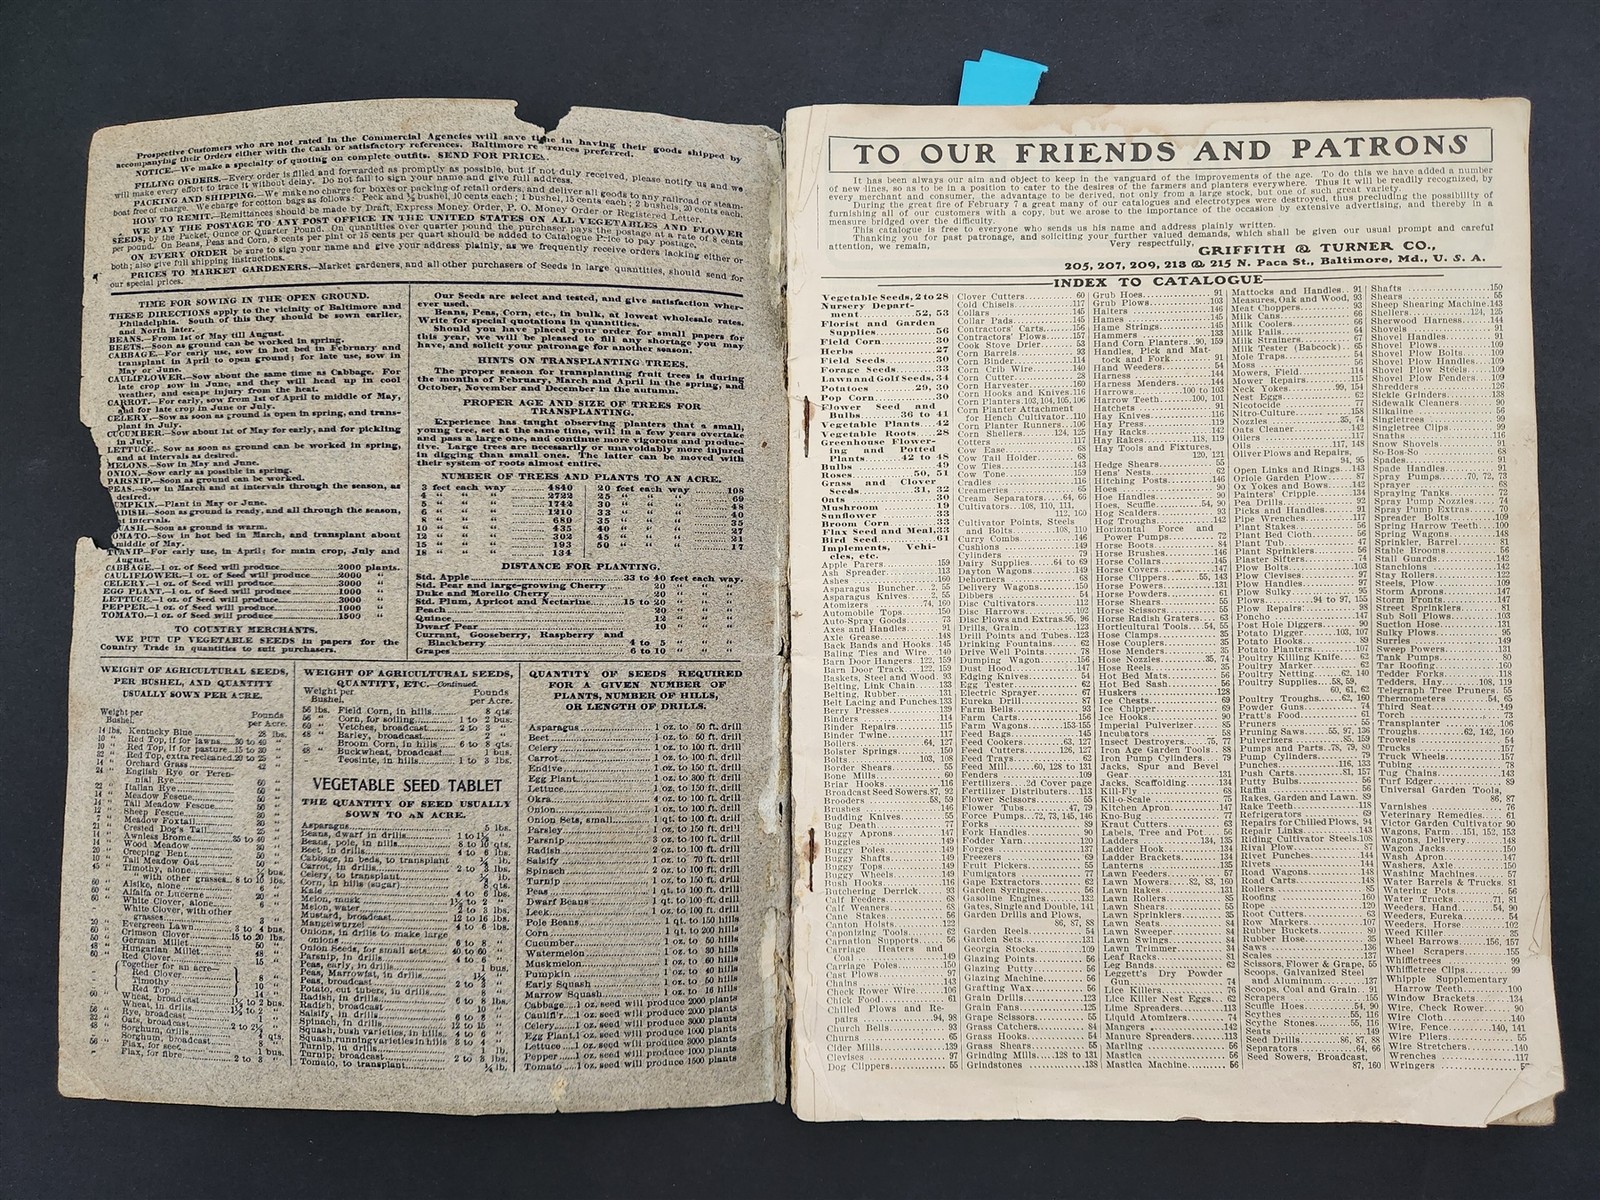 Prospective Customers who are not rated in the Commercial Agencies will save time in having their goods shipped by
accompanying their Orders either with the Cash or satisfactory references. Baltimore re rences preferred.
NOTICE.—We make a specialty of quoting on complete outfits. SEND FOR PRICES.
FILLING ORDERS.—Every order is filled and forwarded as promptly as possible, but if not duly received, please notify us and we
will make every effort to trace it without delay. Do not fail to sign your name and give full address.
PACKING AND SHIPPING.—We make no charge for boxes or packing of retail orders, and deliver all goods to any railroad or steam-
boat free of charge. We charge for cotton bags as follows: Peck and ½ bushel, 10 cents each; 1 bushel, 15 cents each; 2 bushels, 20 cents each.
HOW TO REMIT.—Remittances should be made by Draft, Express Money Order, P. O. Money Order or Registered Letter.
WE PAY THE POSTAGE TO ANY POST OFFICE IN THE UNITED STATES ON ALL VEGETABLES AND FLOWER
SEEDS, by the Packet, Ounce or Quarter Pound. On quantities over quarter pound the purchaser pays the postage at a rate of 8 cents
per pound. On Beans, Peas and Corn, 8 cents per pint or 15 cents per quart should be added to Catalogue Price to pay postage.
ON EVERY ORDER be sure to sign your name and give your address plainly, as we frequently receive orders lacking either or
both; also give full shipping instructions.
PRICES TO MARKET GARDENERS.—Market gardeners, and all other purchasers of Seeds in large quantities, should send for
our special prices.
TIME FOR SOWING IN THE OPEN GROUND.
THESE DIRECTIONS apply to the vicinity of Baltimore and
Philadelphia. South of this they should be sown earlier,
and North later.
BEANS.—From 1st of May till August.
BEETS.—Soon as ground can be worked in spring.
CABBAGE.—For early use, sow in hot bed in February and
transplant in April to open ground; for late use, sow in
May or June.
CAULIFLOWER.—Sow about the same time as Cabbage. For
late crop sow in June, and they will head up in cool
weather, and escape injury from the heat.
CARROT.—For early, sow from 1st of April to middle of May,
and for late crop in June or July.
CELERY.—Sow as soon as ground is open in spring, and trans-
plant in July.
CUCUMBER.—Sow about 1st of May for early, and for pickling
in July.
LETTUCE.—Sow as soon as ground can be worked in spring,
and at intervals as desired.
MELONS.—Sow in May and June.
ONION.—Sow early as possible in spring.
PARSNIP.—Soon as ground can be worked.
PEAS.—Sow in March and at intervals through the season, as
desired.
UMPKIN.—Plant in May or June.
ADISH.—Soon as ground is ready, and all through the season,
t intervals.
UASH.—Soon as ground is warm.
OMATO.—Sow in hot bed in March, and transplant about
middle of May.
TURNIP.—For early use, in April; for main crop, July and
August.
CABBAGE.—1 oz. of Seed will produce 2000 plants.
CAULIFLOWER.—1 oz. of Seed will produce 2000 "
CELERY.—1 oz. of Seed will produce 3000 "
EGG PLANT.—1 oz. of Seed will produce 1000 "
LETTUCE.—1 oz. of Seed will produce 3000 "
PEPPER.—1 oz. of Seed will produce 1000 "
TOMATO.—1 oz. of Seed will produce 1500 "
TO COUNTRY MERCHANTS.
WE PUT UP VEGETABLE SEEDS in papers for the
Country Trade in quantities to suit purchasers.
Our Seeds are select and tested, and give satisfaction wher-
ever used.
Beans, Peas, Corn, etc., in bulk, at lowest wholesale rates.
Write for special quotations in quantities.
Should you have placed your order for small papers for
this year, we will be pleased to fill any shortage you may
have, and solicit your patronage for another season.
HINTS ON TRANSPLANTING TREES.
The proper season for transplanting fruit trees is during
the months of February, March and April in the spring, and
October, November and December in the autumn.
PROPER AGE AND SIZE OF TREES FOR
TRANSPLANTING.
Experience has taught observing planters that a small,
young tree, set at the same time, will in a few years overtake
and pass a large one, and continue more vigorous and produc-
tive. Large trees are necessarily or unavoidably more injured
in digging than small ones. The latter can be moved with
their system of roots almost entire.
NUMBER OF TREES AND PLANTS TO AN ACRE.
3 feet each way 4840 20 feet each way 108
4 " " " 2722 25 " " " 69
5 " " " 1742 30 " " " 48
6 " " " 1210 33 " " " 40
8 " " " 680 35 " " " 35
10 " " " 435 40 " " " 27
12 " " " 302 45 " " " 21
15 " " " 193 50 " " " 17
18 " " " 134
DISTANCE FOR PLANTING.
Std. Apple 33 to 40 feet each way.
Std. Pear and large-growing Cherry 20 " " "
Duke and Morello Cherry 20 " " "
Std. Plum, Apricot and Nectarine 15 to 20 " " "
Peach 20 " " "
Quince 12 " " "
Dwarf Pear 10 " " "
Currant, Gooseberry, Raspberry and
Blackberry 4 to 5 " " "
Grapes 6 to 10 " " "
WEIGHT OF AGRICULTURAL SEEDS,
PER BUSHEL, AND QUANTITY
USUALLY SOWN PER ACRE.
Weight per Bushel. Pounds per Acre.
14 lbs. Kentucky Blue 28 lbs.
Red Top, if for lawns 30 to 40 "
Red Top, if for pasture 15 to 20 "
Red Top, extra recleaned 20 to 25 "
Orchard Grass
English Rye or Peren-
nial Rye
Italian Rye
Meadow Fescue
Tall Meadow Fescue
Sheep Fescue
Meadow Foxtail
Crested Dog's Tail
Awnless Brome 35 to 40 "
Wood Meadow
Creeping Bent
Tall Meadow Oat
Timothy, alone
" with other grasses 8 to 10 lbs.
Alsike, alone
Alfalfa or Lucerne
White Clover, alone
White Clover, with other
grasses
Evergreen Lawn 3 to 4 bus.
Crimson Clover 15 to 20 lbs.
German Millet
Hungarian Millet
Red Clover
Together for an acre—
Red Clover
Timothy
Red Top
Wheat, broadcast
Wheat, in drills
Rye, broadcast
Oats, broadcast
Sorghum, drills
Sorghum, broadcast
Flax, for seed
Flax, for fibre
WEIGHT OF AGRICULTURAL SEEDS,
QUANTITY, ETC.—Continued.
Weight per Bushel. Pounds per Acre.
56 lbs. Field Corn, in hills 8 qts.
56 " Corn, for soiling 1 to 2 bus.
60 " Vetches, broadcast 2 to 3 "
48 " Barley, broadcast 2 "
Broom Corn, in hills 6 to 8 qts.
48 " Buckwheat, broadcast 1 bus.
Teosinte, in hills 1 to 3 lbs.
VEGETABLE SEED TABLET
THE QUANTITY OF SEED USUALLY
SOWN TO AN ACRE.
Asparagus 5 lbs.
Beans, dwarf in drills
Beans, pole, in hills 8 to 10 qts.
Beet, in drills 4 to 6 lbs.
Cabbage, in beds, to transplant
Carrot, in drills 2 to 3 lbs.
Celery, to transplant
Corn, in hills (sugar) 8 qts.
Kale
Melon, musk
Melon, water 2 to 3 lbs.
Mustard, broadcast 12 to 16 lbs.
Mangelwurzel 4 to 6 lbs.
Onions, in drills to make large
onions 6 to 8 "
Onion Seeds, for small sets 40 to 60 "
Parsnip, in drills 4 to 6 "
Peas, early, in drills
Peas, Marrowfat, in drills
Peas, broadcast 2 to 3 "
Potato, cut tubers, in drills
Radish, in drills 6 to 8 lbs.
Radish, broadcast
Salsify, in drills 6 to 8 "
Spinach, in drills 12 to 15 "
Squash, bush varieties, in hills 4 to 6 "
Squash, running varieties in hills 3 to 4 "
Turnip, in drills 1 lb.
Turnip, broadcast 2 to 3 lbs.
Tomato, to transplant ¼ lb.
QUANTITY OF SEEDS REQUIRED
FOR A GIVEN NUMBER OF
PLANTS, NUMBER OF HILLS,
OR LENGTH OF DRILLS.
Asparagus 1 oz. to 50 ft. drill
Beet 1 oz. to 50 ft. drill
Celery 1 oz. to 100 ft. drill
Carrot 1 oz. to 100 ft. drill
Endive 1 oz. to 150 ft. drill
Egg Plant 1 oz. to 200 ft. drill
Lettuce 1 oz. to 150 ft. drill
Okra 1 oz. to 100 ft. drill
Onion 1 oz. to 100 ft. drill
Onion Sets, small 1 qt. to 100 ft. drill
Parsley 1 oz. to 150 ft. drill
Parsnip 3 oz. to 200 ft. drill
Radish 2 oz. to 100 ft. drill
Salsify 1 oz. to 70 ft. drill
Spinach 2 oz. to 100 ft. drill
Turnip 1 oz. to 150 ft. drill
Peas 1 qt. to 100 ft. drill
Dwarf Beans 1 qt. to 100 ft. drill
Leek 1 oz. to 100 ft. drill
Pole Beans 1 qt. to 150 hills
Corn 1 qt. to 200 hills
Cucumber 1 oz. to 50 hills
Watermelon 1 oz. to 30 hills
Muskmelon 1 oz. to 60 hills
Pumpkin 1 oz. to 40 hills
Early Squash 1 oz. to 50 hills
Marrow Squash 1 oz. to 16 hills
Cabbage 1 oz. seed will produce 2000 plants
Caulifl'r 1 oz. seed will produce 2000 plants
Celery 1 oz. seed will produce 3000 plants
Egg Plant 1 oz. seed will produce 1000 plants
Lettuce 1 oz. seed will produce 3000 plants
Pepper 1 oz. seed will produce 1000 plants
Tomato 1 oz. seed will produce 1500 plants
TO OUR FRIENDS AND PATRONS
It has been always our aim and object to keep in the vanguard of the improvements of the age. To do this we have added a number
of new lines, so as to be in position to cater to the desires of the farmers and planters everywhere. Thus it will be readily recognized, by
every merchant and consumer, the advantage to be derived, not only from a large stock, but one of such great variety.
During the great fire of February 7 a great many of our catalogues and electrotypes were destroyed, thus precluding the possibility of
furnishing all of our customers with a copy, but we arose to the importance of the occasion by extensive advertising, and thereby in a
measure bridged over the difficulty.
This catalogue is free to everyone who sends us his name and address plainly written.
Thanking you for past patronage, and soliciting your further valued demands, which shall be given our usual prompt and careful
attention, we remain,
Very respectfully,
GRIFFITH & TURNER CO.,
205, 207, 209, 213 & 215 N. Paca St., Baltimore, Md., U. S. A.
INDEX TO CATALOGUE
Vegetable Seeds, 2 to 28
Nursery Depart-
ment 52, 53
Florist and Garden
Supplies 56
Field Corn 30
Herbs 27
Field Seeds 30
Forage Seeds 33
Lawn and Golf Seeds, 34
Potatoes 29, 30
Pop Corn 30
Flower Seed and
Bulbs 36 to 41
Vegetable Plants 42
Vegetable Roots 28
Greenhouse Flower-
ing and Potted
Plants 42 to 48
Bulbs 49
Roses 50, 51
Grass and Clover
Seeds 31, 32
Oats 30
Mushroom 19
Sunflower 33
Broom Corn 33
Flax Seed and Meal, 33
Bird Seed 61
Implements, Vehi-
cles, etc.
Apple Parers 159
Ash Spreader 113
Ashes 160
Asparagus Buncher 2
Asparagus Knives 2, 55
Atomizers 74, 160
Automobile Tops 150
Auto-Spray Goods 73
Axes and Handles 91
Axle Grease 148
Back Bands and Hooks 145
Baling Ties and Wire 140
Barn Door Hangers 122, 159
Barn Door Track 122, 159
Baskets, Steel and Wood 93
Belting, Link Chain 133
Belting, Rubber 131
Belt Lacing and Punches 133
Berry Presses 139
Binders 114
Binder Repairs 115
Binder Twine 117
Boilers 64, 127
Bolster Springs 150
Bolts 103, 108
Border Shears 55
Bone Mills 60
Briar Hooks 116
Broadcast Seed Sowers 87, 92
Brooders 58, 59
Brushes 146
Budding Knives 55
Bug Death 77
Buggy Aprons 147
Buggies 149
Buggy Poles 149
Buggy Shafts 149
Buggy Tops 149
Buggy Wheels 149
Bush Hooks 116
Butchering Derrick 93
Calf Feeders 68
Calf Weaners 68
Cane Stakes 56
Canton Hoists 122
Caponizing Tools 62
Carnation Supports 56
Carriage Heaters and
Coal 149
Carriage Poles 150
Cast Plows 97
Chains 143
Check Rower Wire 106
Chick Food 61
Chilled Plows and Re-
pairs 94, 98
Church Bells 93
Churns 65
Cider Mills 139
Clevises 97
Dog Clippers 55
Clover Cutters 60
Cold Chisels 117
Collars 145
Collar Pads 145
Contractors' Carts 156
Contractors' Plows 157
Cook Stove Dries 53
Corn Barrels 93
Corn Binder 114
Corn Crib Wire 140
Corn Cutter 28
Corn Harvester 160
Corn Hooks and Knives 116
Corn Planters 103, 104, 105, 106
Corn Planter Attachment
for Hench Cultivator 110
Corn Planter Runners 106
Corn Shellers 124, 125
Cotters 117
Cow Ease 68
Cow Tail Holder 68
Cow Ties 143
Cow Tone 159
Cradles 116
Creameries 65
Cream Separators 64, 66
Cultivators 108, 110, 111,
112, 160
Cultivator Points, Steels
and Bolts 108, 110
Curry Combs 146
Cushions 149
Dairy Supplies 64 to 69
Dayton Wagons 149
Dehorners 68
Delivery Wagons 150
Dibbers 54
Disc Cultivators 112
Disc Harrows 102
Disc Plows and Extras 95, 96
Drills, Grain 123
Drill Points and Tubes 123
Drinking Fountains 62
Drive Well Points 78
Dumping Wagon 156
Dust Hood 147
Edging Knives 54
Egg Tester 62
Electric Sprayer 67
Eureka Drill 87
Farm Bells 93
Farm Carts 156
Farm Wagons 153-155
Feed Bags 145
Feed Cookers 63, 127
Feed Cutters 126, 127
Feed Trays 62
Feed Mill 60, 128 to 131
Fenders 109
Fertilizers 3d Cover page
Fertilizer Distributers 113
Flower Scissors 55
Flower Tubs 47, 79
Force Pumps 72, 73, 145, 146
Forks 89
Fork Handles 90
Fodder Yarn 120
Forges 137
Freezers 69
Fruit Pickers 55
Fumigators 77
Gape Extractors 62
Garden Syringes 56
Gasoline Engines 132
Gates, Single and Double, 141
Garden Drills and Plows,
86, 87, 88
Garden Reels 54
Garden Sets 131
Georgia Stocks 109
Glazing Points 56
Glazing Putty 56
Glazing Machine 56
Grafting Wax 56
Grain Drills 123
Grain Fans 125
Grape Scissors 55
Grass Catchers 84
Grass Hooks 54
Grass Shears 54
Grinding Mills 128 to 131
Grindstones 138
Grub Hoes 91
Grub Plows 103
Halters 146
Hames 145
Hame Strings 145
Hammers 133
Hand Corn Planters 90, 159
Handles, Pick and Mat-
tock and Fork 91
Hand Weeders 54
Harness 144
Harness Menders 144
Harrows 100 to 103
Harrow Teeth 100, 101
Hatchets 91
Hay Knives 116
Hay Press 119
Hay Racks 142
Hay Rakes 118, 119
Hay Tools and Fixtures,
120, 121
Hedge Shears 55
Hens' Nests 62
Hitching Posts 146
Hoes 90
Hoe Handles 90
Hoes, Scuffle 54, 90
Hog Scalders 93
Hog Troughs 142
Horizontal Force and
Power Pumps 72
Horse Boots 84
Horse Brushes 146
Horse Collars 145
Horse Covers 147
Horse Clippers 55, 143
Horse Powers 131
Horse Powers 61
Horse Shears 55
Horse Scissors 55
Horse Radish Graters 63
Horticultural Tools 54, 55
Hose Clamps 35
Hose Couplers 35
Hose Menders 35
Hose Nozzles 35, 74
Hose Reels 35
Hot Bed Mats 56
Hot Bed Sash 56
Huskers 128
Ice Chests 69
Ice Chipper 69
Ice Hooks 90
Imperial Pulverizer 85
Incubators 58
Insect Destroyers 75, 77
Iron Age Garden Tools 88
Iron Pump Cylinders 79
Jacks, Spur and Bevel
Gear 131
Jacks, Scaffolding 134
Kill-Fly 68
Kil-o-Scale 75
Kitchen Apron 147
Kno-Bug 77
Kraut Cutters 63
Labels, Tree and Pot 56
Ladders 134, 135
Ladder Hook 134
Ladder Brackets 134
Lanterns 135
Lawn Feeders 57
Lawn Mowers 82, 83, 160
Lawn Rakes 131
Lawn Rollers 85
Lawn Shears 55
Lawn Sprinklers 35
Lawn Seats 57
Lawn Sweeper 84
Lawn Swings 84
Lawn Trimmer 34
Leaf Racks 81
Leg Bands 62
Leggett's Dry Powder
Gun 74
Lice Killers 76
Lice Killer Nest Eggs 62
Lime Spreaders 113
Liquid Atomizers 74
Mangers 142
Manure Spreaders 113
Marling 56
Mastica 56
Mastica Machine 56
Mattocks and Handles 91
Measures, Oak and Wood, 93
Meat Choppers 69
Milk Cans 66
Milk Coolers 67
Milk Pails 64
Milk Strainers 67
Milk Tester (Babcock) 65
Mole Traps 54
Moss 56
Mowers, Field 114
Mower Repairs 115
Neck Yokes 99, 154
Nest Eggs 62
Nicotocide 77
Nitro-Culture 158
Nozzles 35, 74
Oats Cleaner 143
Oilers 117
Oils 117, 148
Oliver Plows and Repairs,
94, 95
Open Links and Rings 143
Oriole Garden Plow 87
Ox Yokes and Bows 142
Painters' Cripple 134
Pea Drills 92
Picks and Handles 91
Pipe Wrenches 117
Plant Stakes 56
Plant Bed Cloth 56
Plant Tub 47
Plant Sprinklers 56
Plaster Setters 74
Plow Bolts 103
Plow Clevises 97
Plow Handles 97
Plow Sulky 95
Plows 94 to 97, 155
Plow Repairs 98
Poncho 147
Post Hole Diggers 90
Potato Digger 103, 107
Potato Hooks 89
Potato Planters 107
Poultry Killing Knife 62
Poultry Marker 62
Poultry Netting 62, 140
Poultry Supplies 58, 59,
60, 61, 62
Poultry Troughs 62, 160
Powder Guns 74
Pratt's Food 61
Pruners 55
Pruning Saws 55, 97, 136
Pulverizers 85, 159
Pumps and Parts 78, 79, 80
Pump Cylinders 79
Punches 116, 133
Push Carts 81, 157
Putty Bulbs 56
Raffia 56
Rakes, Garden and Lawn 89
Rake Teeth 118
Refrigerators 69
Repairs for Chilled Plows, 94
Repair Links 143
Riding Cultivator Steels 108
Rift Plow 87
Rivet Punches 144
Rivets 144
Road Wagons 148
Road Carts 148
Rollers 85
Roofing 160
Rope 129
Root Cutters 63
Row Markers 107
Rubber Buckets 80
Rubber Hose 35
Saws 136
Scales 137
Scissors, Flower & Grape, 55
Scoops, Galvanized Steel
and Aluminum 137
Scoops, Coal and Grain 91
Scrapers 155
Scuffle Hoes 54, 90
Scythes 55, 116
Scythe Stones 55, 116
Seats 149
Seed Drills 86, 87, 88
Separators 64, 66
Seed Sowers, Broadcast,
87, 160
Shafts 150
Shears 55
Sheep Shearing Machine 143
Shellers 124, 125
Sherwood Harness 144
Shovels 91
Shovel Handles 91
Shovel Plows 109
Shovel Plow Bolts 109
Shovel Plow Handles 109
Shovel Plow Steels 109
Shovel Plow Fenders 109
Shredders 126
Sickle Grinder 138
Sidewalk Cleaners 90
Silkaline 56
Singletrees 99
Singletree Clips 99
Snaths 116
Snow Shovels 91
So-Bos-So 68
Spades 91
Spade Handles 91
Spray Pumps 70, 72, 73
Sprayer 68
Spraying Tanks 72
Spray Pump Nozzles 74
Spray Pump Extras 70
Spreader Bolts 109
Spring Harrow Teeth 100
Spring Wagons 148
Sprinkler, Barrel 81
Stable Brooms 56
Stall Guards 142
Stanchions 142
Stay Rollers 122
Steels, Plow 109
Storm Aprons 147
Storm Fronts 147
Street Sprinklers 81
Sub Soil Plows 103
Suction Hose 131
Sulky Plows 95
Surries 149
Sweep Powers 131
Tank Pumps 80
Tar Roofing 160
Tedder Forks 118
Tedders, Hay 108, 119
Telegraph Tree Pruners 55
Thermometers 64, 65
Third Seat 149
Torch 73
Transplanter 106
Troughs 62, 142, 160
Trowels 54
Trucks 157
Truck Wheels 157
Tubing 78
Tug Chains 143
Turf Edger 89
Universal Garden Tools,
86, 87
Varnishes 76
Veterinary Remedies 61
Victor Garden Cultivator 90
Wagons, Farm 151, 152, 153
Wagons, Delivery 148
Wagon Jacks 150
Wash Apron 147
Washers, Axle 150
Washing Machines 57
Water Barrels & Trucks 81
Watering Pots 56
Water Trucks 71, 81
Weeders, Hand 54, 90
Weeders, Eureka 54
Weeders, Horse 102
Weed Killer 25
Wheel Barrows 156, 157
Wheel Scrapers 155
Whiffletrees 99
Whiffletree Clips 99
Whipple Supplementary
Harrow Teeth 100
Window Brackets 134
Wire, Check Rower 90
Wire Cloth 140
Wire, Fence 140, 141
Wire Pliers 55
Wire Stretchers 140
Wrenches 117
Wringers